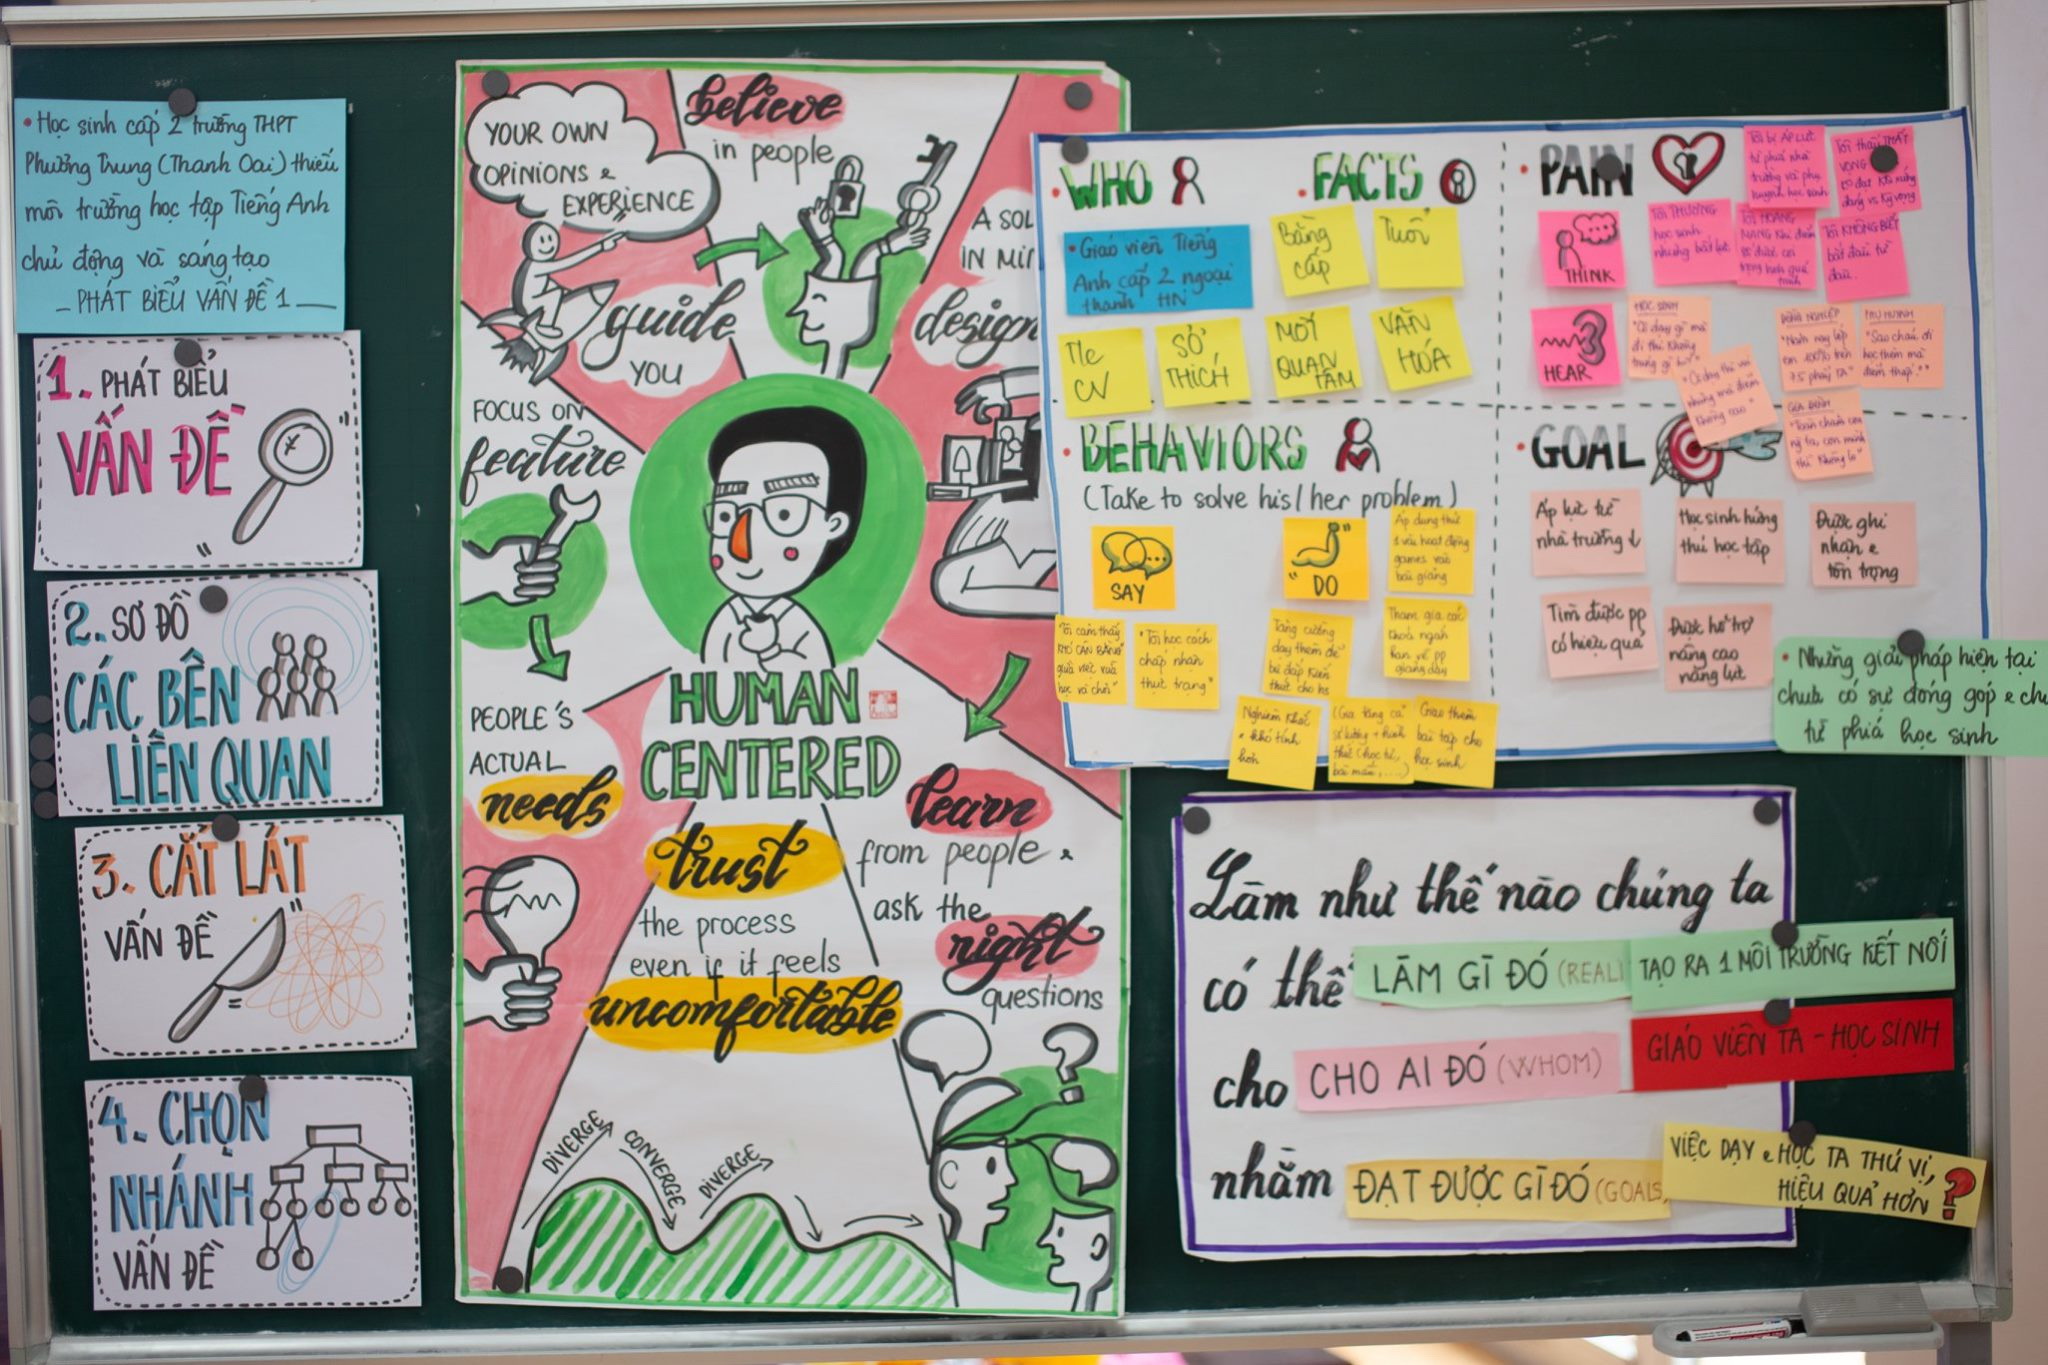 • Học sinh cấp 2 trường THPT
Phương Trung (Thanh Oai) thiếu
môi trường học tập Tiếng Anh
chủ động và sáng tạo
_ PHÁT BIỂU VẤN ĐỀ 1 __
1. PHÁT BIỂU
VẤN ĐỀ
2. SƠ ĐỒ
CÁC BÊN
LIÊN QUAN
3. CẮT LÁT
VẤN ĐỀ
4. CHỌN
NHÁNH
VẤN ĐỀ
YOUR OWN
OPINIONS &
EXPERIENCE
guide
YOU
believe
in people
A SOL
IN MIN
design
FOCUS ON
feature
PEOPLE'S
ACTUAL
needs
HUMAN
CENTERED
trust
the process
even if it feels
uncomfortable
learn
from people &
ask the
right
questions
DIVERGE
CONVERGE
DIVERGE
• WHO
• Giáo viên Tiếng
Anh cấp 2 ngoại
thành HN
• FACTS
Bằng
cấp
Tuổi
TNo
CV
SỞ
THÍCH
MỐI
QUAN
TÂM
VĂN
HÓA
• BEHAVIORS
(Take to solve his/her problem)
SAY
"Tôi cảm thấy
KHÓ CÂN BẰNG
giữa việc vừa
học và chơi"
"Tôi học cách
chấp nhận
thực trạng"
"DO"
Áp dụng thử
1 vài hoạt động
games vào
bài giảng
Tăng cường
dạy thêm để
bù đắp kiến
thức cho hs
Tham gia các
khoá ngắn
hạn về pp
giảng dạy
Nghiêm khắc
& khó tính
hơn
Giao thêm
bài tập cho
học sinh
• PAIN
Tôi bị ÁP LỰC
từ phía nhà
trường và phụ
huynh, học sinh
Tôi thấy THẤT
VỌNG
THINK
Tôi THƯƠNG
học sinh
nhưng bất lực
Tôi HOANG
MANG khi điểm
số được coi
trọng hơn quá
trình
Tôi KHÔNG BIẾT
bắt đầu từ
đâu.
HEAR
HỌC SINH
"Cô dạy gì mà
đi thi không
trúng gì hết"
"Cô dạy thì vui
nhưng mà điểm
không cao"
ĐỒNG NGHIỆP
"Năm nay lớp
em 100% trên
7.5 phẩy TA"
PHỤ HUYNH
"Sao cháu đi
học thêm mà
điểm thấp?"
GIA ĐÌNH
"Toàn chăm con
ng ta, con mình
thì không lo"
• GOAL
Áp lực từ
nhà trường ↓
Học sinh hứng
thú học tập
Được ghi
nhận &
tôn trọng
Tìm được pp
có hiệu quả
Được hỗ trợ
nâng cao
năng lực
• Những giải pháp hiện tại
chưa có sự đóng góp & chủ
từ phía học sinh
Làm như thế nào chúng ta
có thể LÀM GÌ ĐÓ (REAL TẠO RA 1 MÔI TRƯỜNG KẾT NỐI
cho CHO AI ĐÓ (WHOM) GIÁO VIÊN TA - HỌC SINH
nhằm ĐẠT ĐƯỢC GÌ ĐÓ (GOALS) VIỆC DẠY & HỌC TA THÚ VỊ,
HIỆU QUẢ HƠN ?